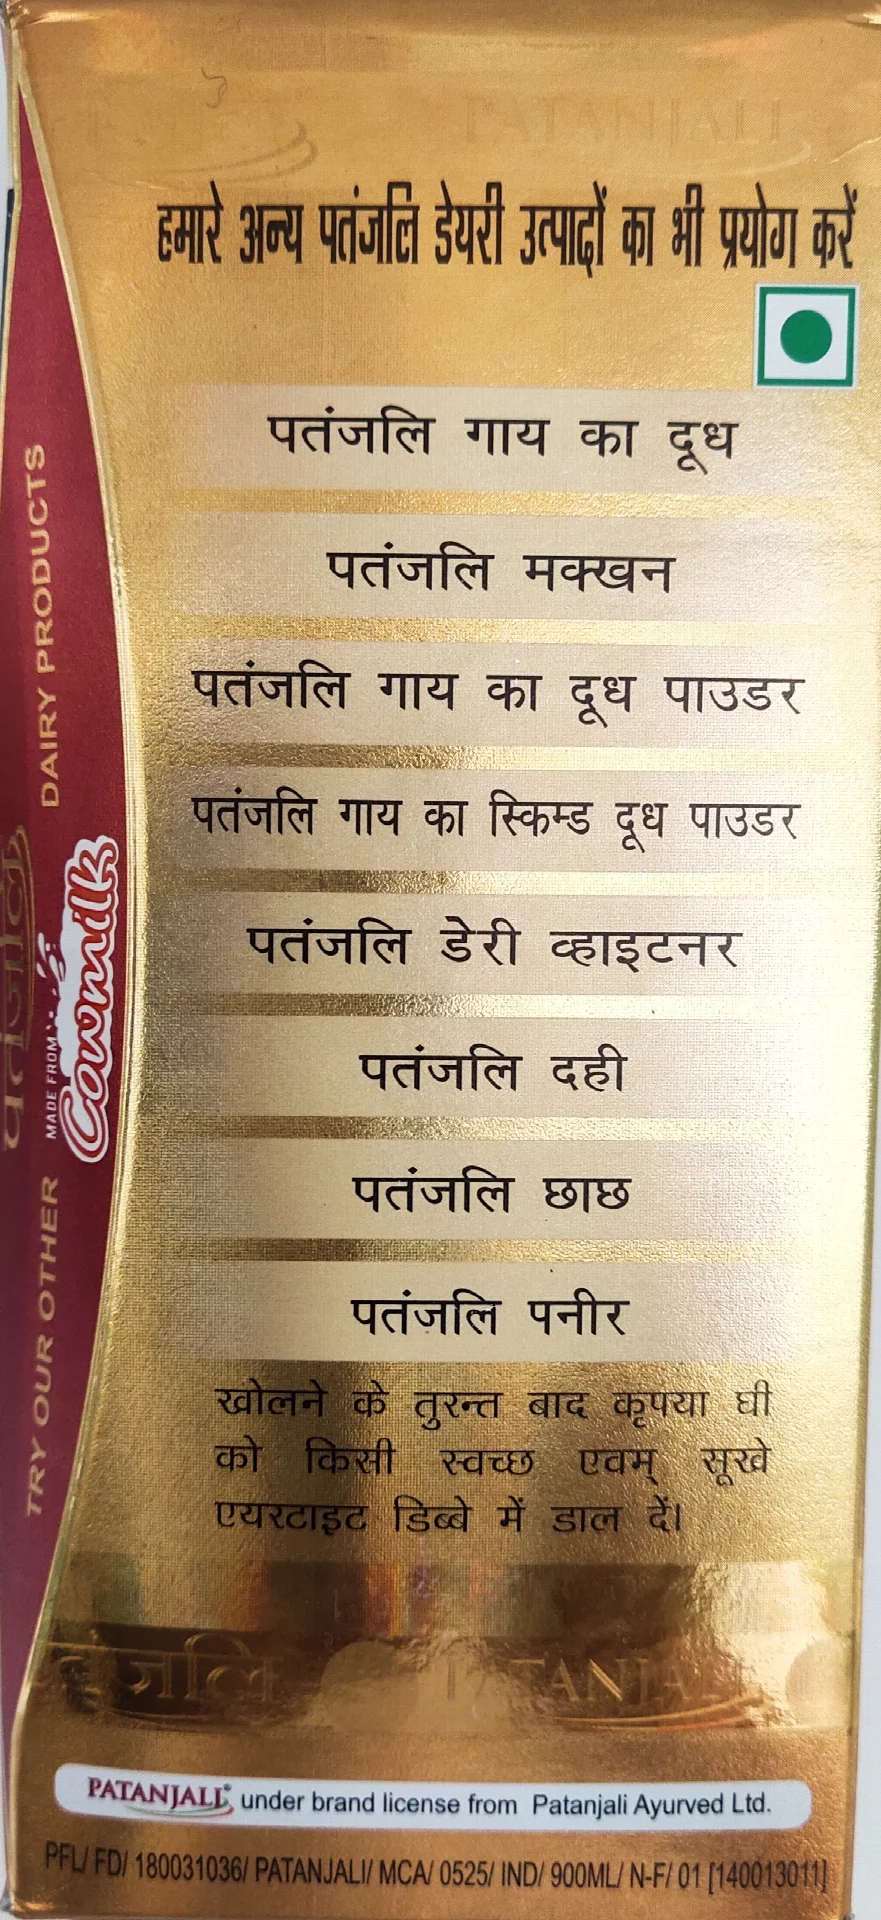 हमारे अन्य पतंजलि डेयरी उत्पादों का भी प्रयोग करें
पतंजलि गाय का दूध
पतंजलि मक्खन
पतंजलि गाय का दूध पाउडर
पतंजलि गाय का स्किम्ड दूध पाउडर
पतंजलि डेरी व्हाइटनर
पतंजलि दही
पतंजलि छाछ
पतंजलि पनीर
खोलने के तुरन्त बाद कृपया घी
को किसी स्वच्छ एवम् सूखे
एयरटाइट डिब्बे में डाल दें।
PATANJALI® under brand license from Patanjali Ayurved Ltd.
PFL/ FD/ 180031036/ PATANJALI/ MCA/ 0525/ IND/ 900ML/ N-F/ 01 [140013011]
TRY OUR OTHER MADE FROM Cowmilk DAIRY PRODUCTS
पतंजलि
PATANJALI